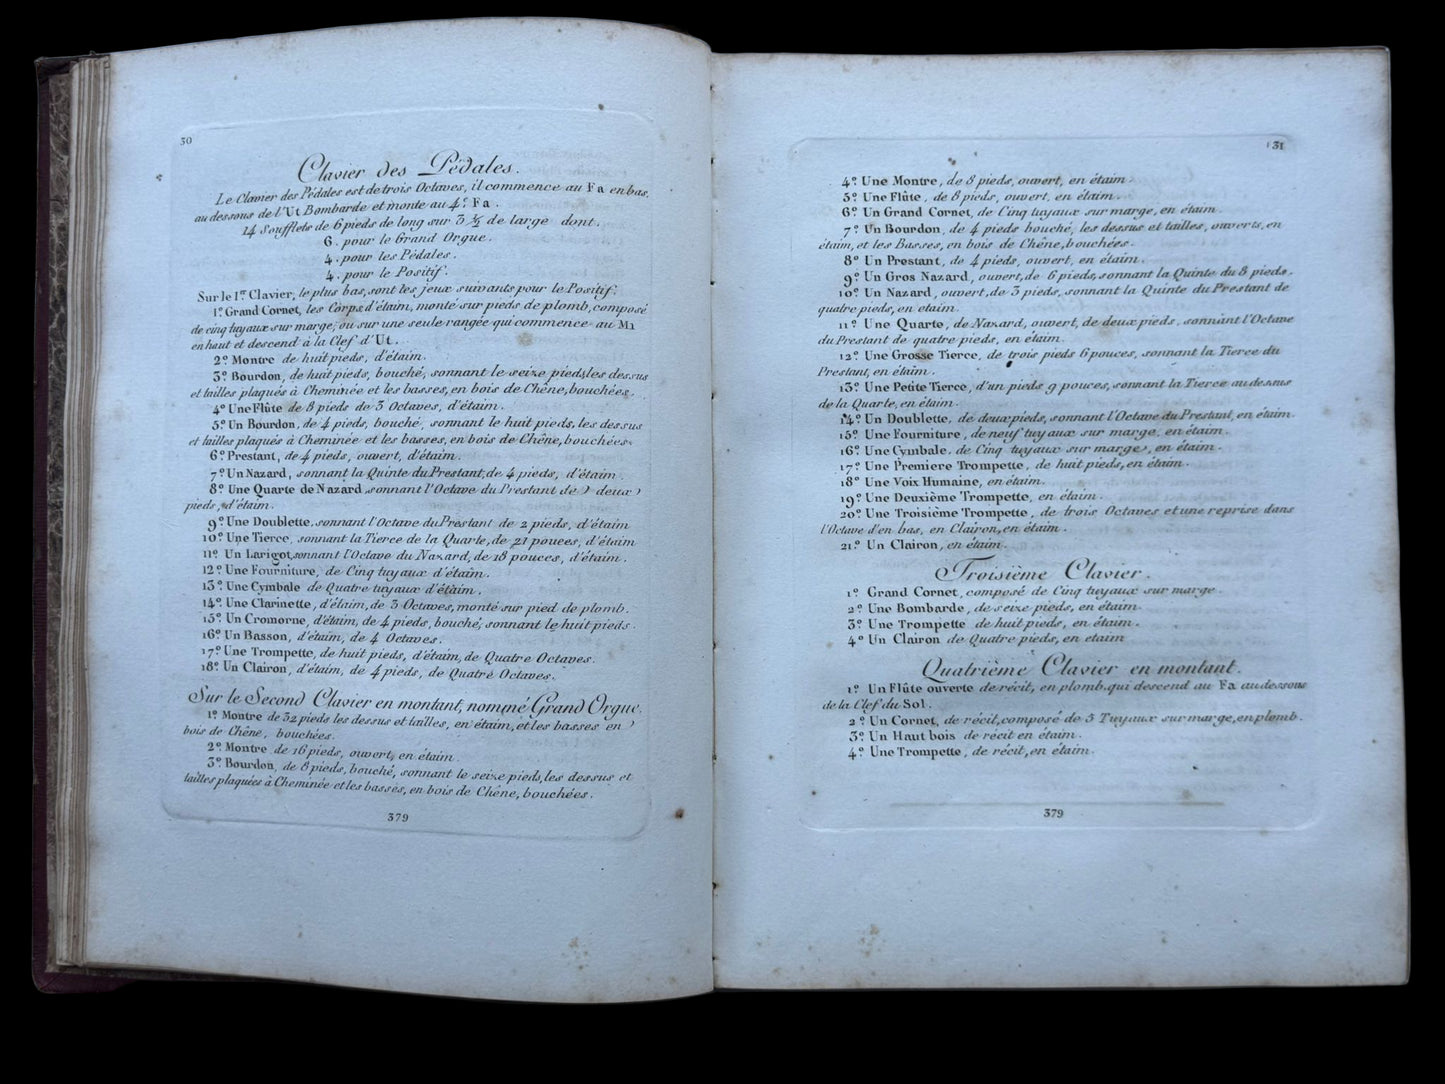 30
Clavier des Pédales.
Le Clavier des Pédales est de trois Octaves, il commence au Fa en bas,
au dessous de l'Ut Bombarde et monte au 4.e Fa.
14 Soufflets de 6 pieds de long sur 3 ½ de large dont.
6. pour le Grand Orgue.
4. pour les Pédales.
4. pour le Positif.
Sur le 1.er Clavier, le plus bas, sont les jeux suivants pour le Positif.
1.o Grand Cornet, les Corps d'étaim, monté sur pieds de plomb, composé
de cinq tuyaux sur marge, ou sur une seule rangée qui commence au Mi
en haut et descend à la Clef d'Ut.
2.o Montre de huit pieds, d'étaim.
3.o Bourdon, de huit pieds, bouché, sonnant le seize pieds, les dessus
et tailles plaqués à Cheminée et les basses, en bois de Chêne, bouchées.
4.o Une Flûte de 8 pieds de 3 Octaves, d'étaim.
5.o Un Bourdon, de 4 pieds, bouché, sonnant le huit pieds, les dessus
et tailles plaqués à Cheminée et les basses, en bois de Chêne, bouchées.
6.o Prestant, de 4 pieds, ouvert, d'étaim.
7.o Un Nazard, sonnant la Quinte du Prestant, de 4 pieds, d'étaim.
8.o Une Quarte de Nazard sonnant l'Octave du Prestant de deux
pieds, d'étaim.
9.o Une Doublette, sonnant l'Octave du Prestant de 2 pieds, d'étaim
10.o Une Tierce, sonnant la Tierce de la Quarte, de 21 pouces, d'étaim
11.o Un Larigot, sonnant l'Octave du Nazard, de 18 pouces, d'étaim.
12.o Une Fourniture, de Cinq tuyaux d'étaim.
13.o Une Cymbale de Quatre tuyaux d'étaim.
14.o Une Clarinette, d'étaim, de 3 Octaves, monté sur pied de plomb.
15.o Un Cromorne, d'étaim, de 4 pieds, bouché, sonnant le huit pieds.
16.o Un Basson, d'étaim, de 4 Octaves.
17.o Une Trompette, de huit pieds, d'étaim, de Quatre Octaves.
18.o Un Clairon, d'étaim, de 4 pieds, de Quatre Octaves.
Sur le Second Clavier en montant, nommé Grand Orgue.
1.o Montre de 32 pieds les dessus et tailles, en étaim, et les basses en
bois de Chêne, bouchées.
2.o Montre de 16 pieds, ouvert, en étaim.
3.o Bourdon, de 8 pieds, bouché, sonnant le seize pieds, les dessus et
tailles plaquées à Cheminée et les basses, en bois de Chêne, bouchées.
379
31
4.o Une Montre, de 8 pieds, ouvert, en étaim.
5.o Une Flûte, de 8 pieds, ouvert, en étaim.
6.o Un Grand Cornet, de Cinq tuyaux sur marge, en étaim.
7.o Un Bourdon, de 4 pieds bouché, les dessus et tailles, ouverts, en
étaim, et les Basses, en bois de Chêne, bouchées.
8.o Un Prestant, de 4 pieds, ouvert, en étaim.
9.o Un Gros Nazard, ouvert, de 6 pieds, sonnant la Quinte du 8 pieds.
10.o Un Nazard, ouvert, de 3 pieds, sonnant la Quinte du Prestant de
quatre pieds, en etaim.
11.o Une Quarte, de Nazard, ouvert, de deux pieds, sonnant l'Octave
du Prestant de quatre pieds, en étaim.
12.o Une Grosse Tierce, de trois pieds 6 pouces, sonnant la Tierce du
Prestant, en étaim.
13.o Une Petite Tierce, d'un pieds 9 pouces, sonnant la Tierce au dessus
de la Quarte, en étaim.
14.o Un Doublette, de deux pieds, sonnant l'Octave du Prestant, en étaim.
15.o Une Fourniture, de neuf tuyaux sur marge, en étaim.
16.o Une Cymbale, de Cinq tuyaux sur marge, en étaim.
17.o Une Premiere Trompette, de huit pieds, en étaim.
18.o Une Voix Humaine, en étaim.
19.o Une Deuxième Trompette, en étaim.
20.o Une Troisième Trompette, de trois Octaves et une reprise dans
l'Octave d'en bas, en Clairon, en étaim.
21.o Un Clairon, en étaim.
Troisième Clavier.
1.o Grand Cornet, composé de Cinq tuyaux sur marge.
2.o Une Bombarde, de seize pieds, en étaim.
3.o Une Trompette de huit pieds, en étaim.
4.o Un Clairon de Quatre pieds, en etaim
Quatrième Clavier en montant.
1.o Un Flûte ouverte de récit, en plomb, qui descend au Fa au dessous
de la Clef du Sol.
2.o Un Cornet, de récit, composé de 5 Tuyaux sur marge, en plomb.
3.o Un Haut bois de récit en étaim.
4.o Une Trompette, de récit, en étaim.
379